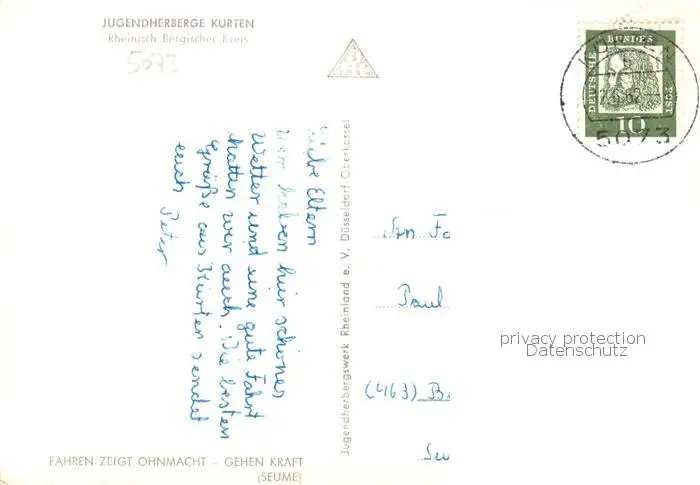 JUGENDHERBERGE KURTEN
Rheinisch Bergischer Kreis
5073
DEUTSCHE BUNDESPOST
10
5073
Liebe Eltern
wir haben hier schönes
Wetter und eine gute Fahrt
hatten wir auch. Die besten
Grüße aus Kürten sendet
euch Peter
Jugendherbergswerk Rheinland e. V. Düsseldorf-Oberkassel
An Fa
Paul
(463) B
privacy protection
Datenschutz
FAHREN ZEIGT OHNMACHT – GEHEN KRAFT
(SEUME)